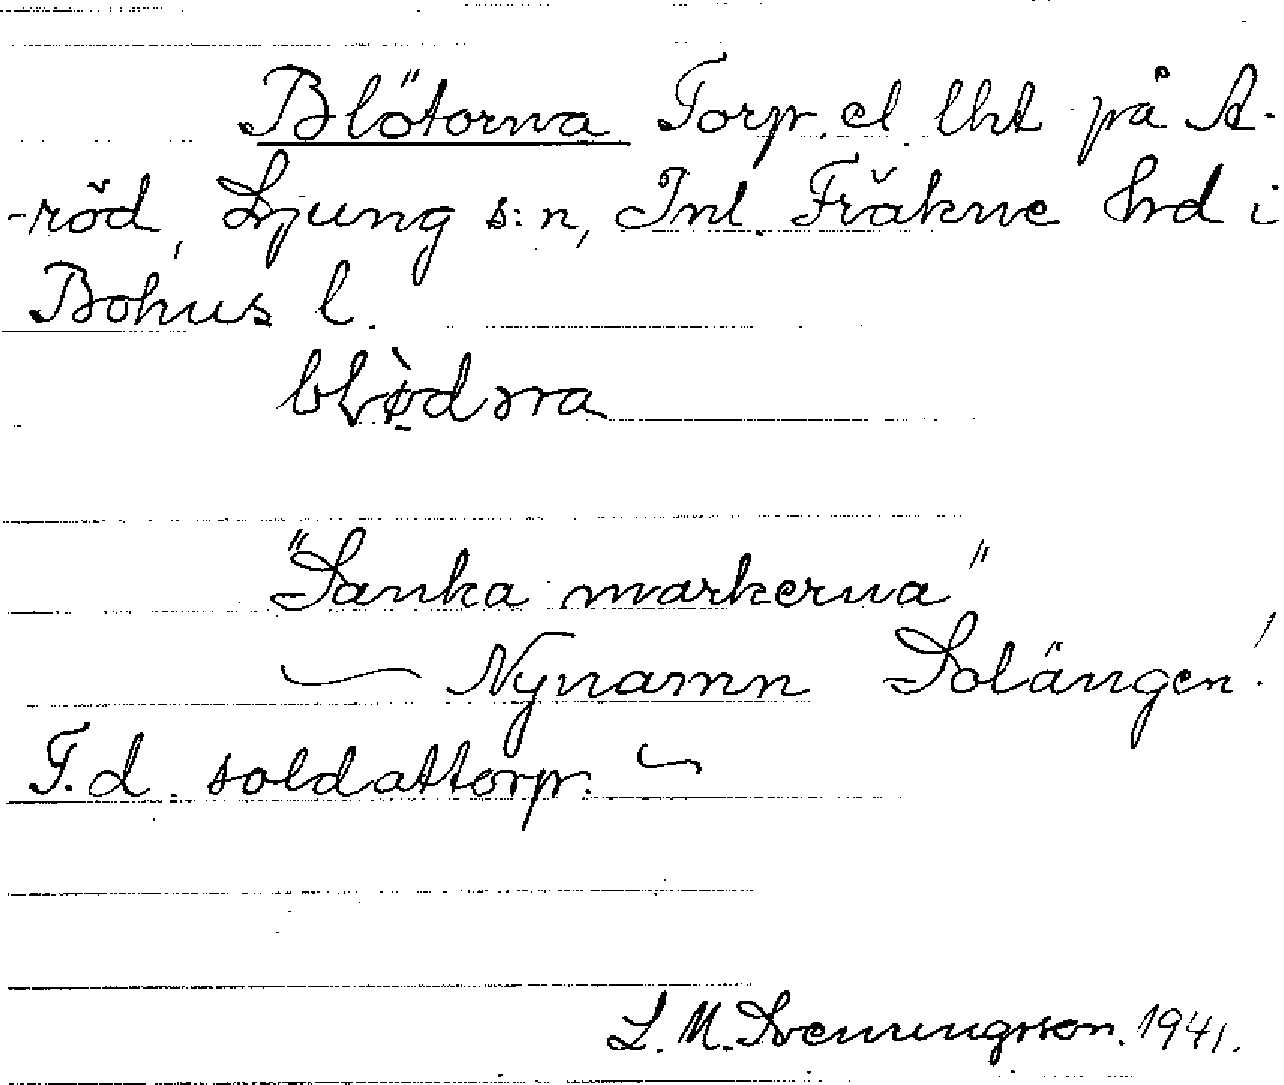 Blötorna Torp. el. lht på A-
-röd, Ljung s:n, Inl. Fräkne hrd i
Bohus l.
"Sanka markerna"
Nynamn Solängen!
F.d. soldattorp.
L. M. Svenungsson. 1941.